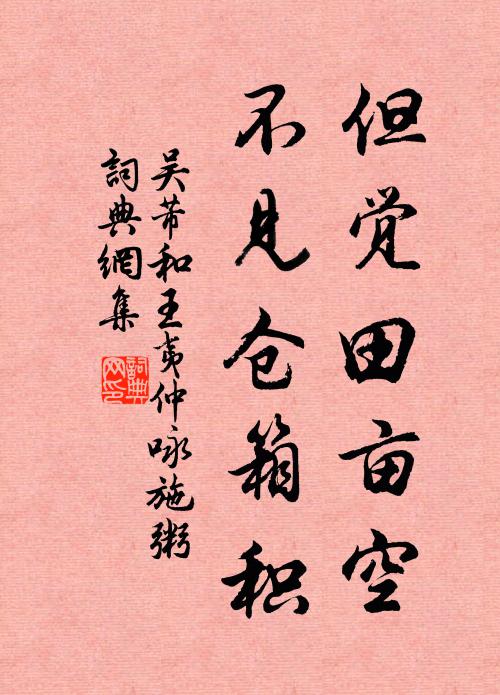 但觉田亩空
不见仓箱积
吴芾和王夷仲咏施粥
詞典網集
詞典网印